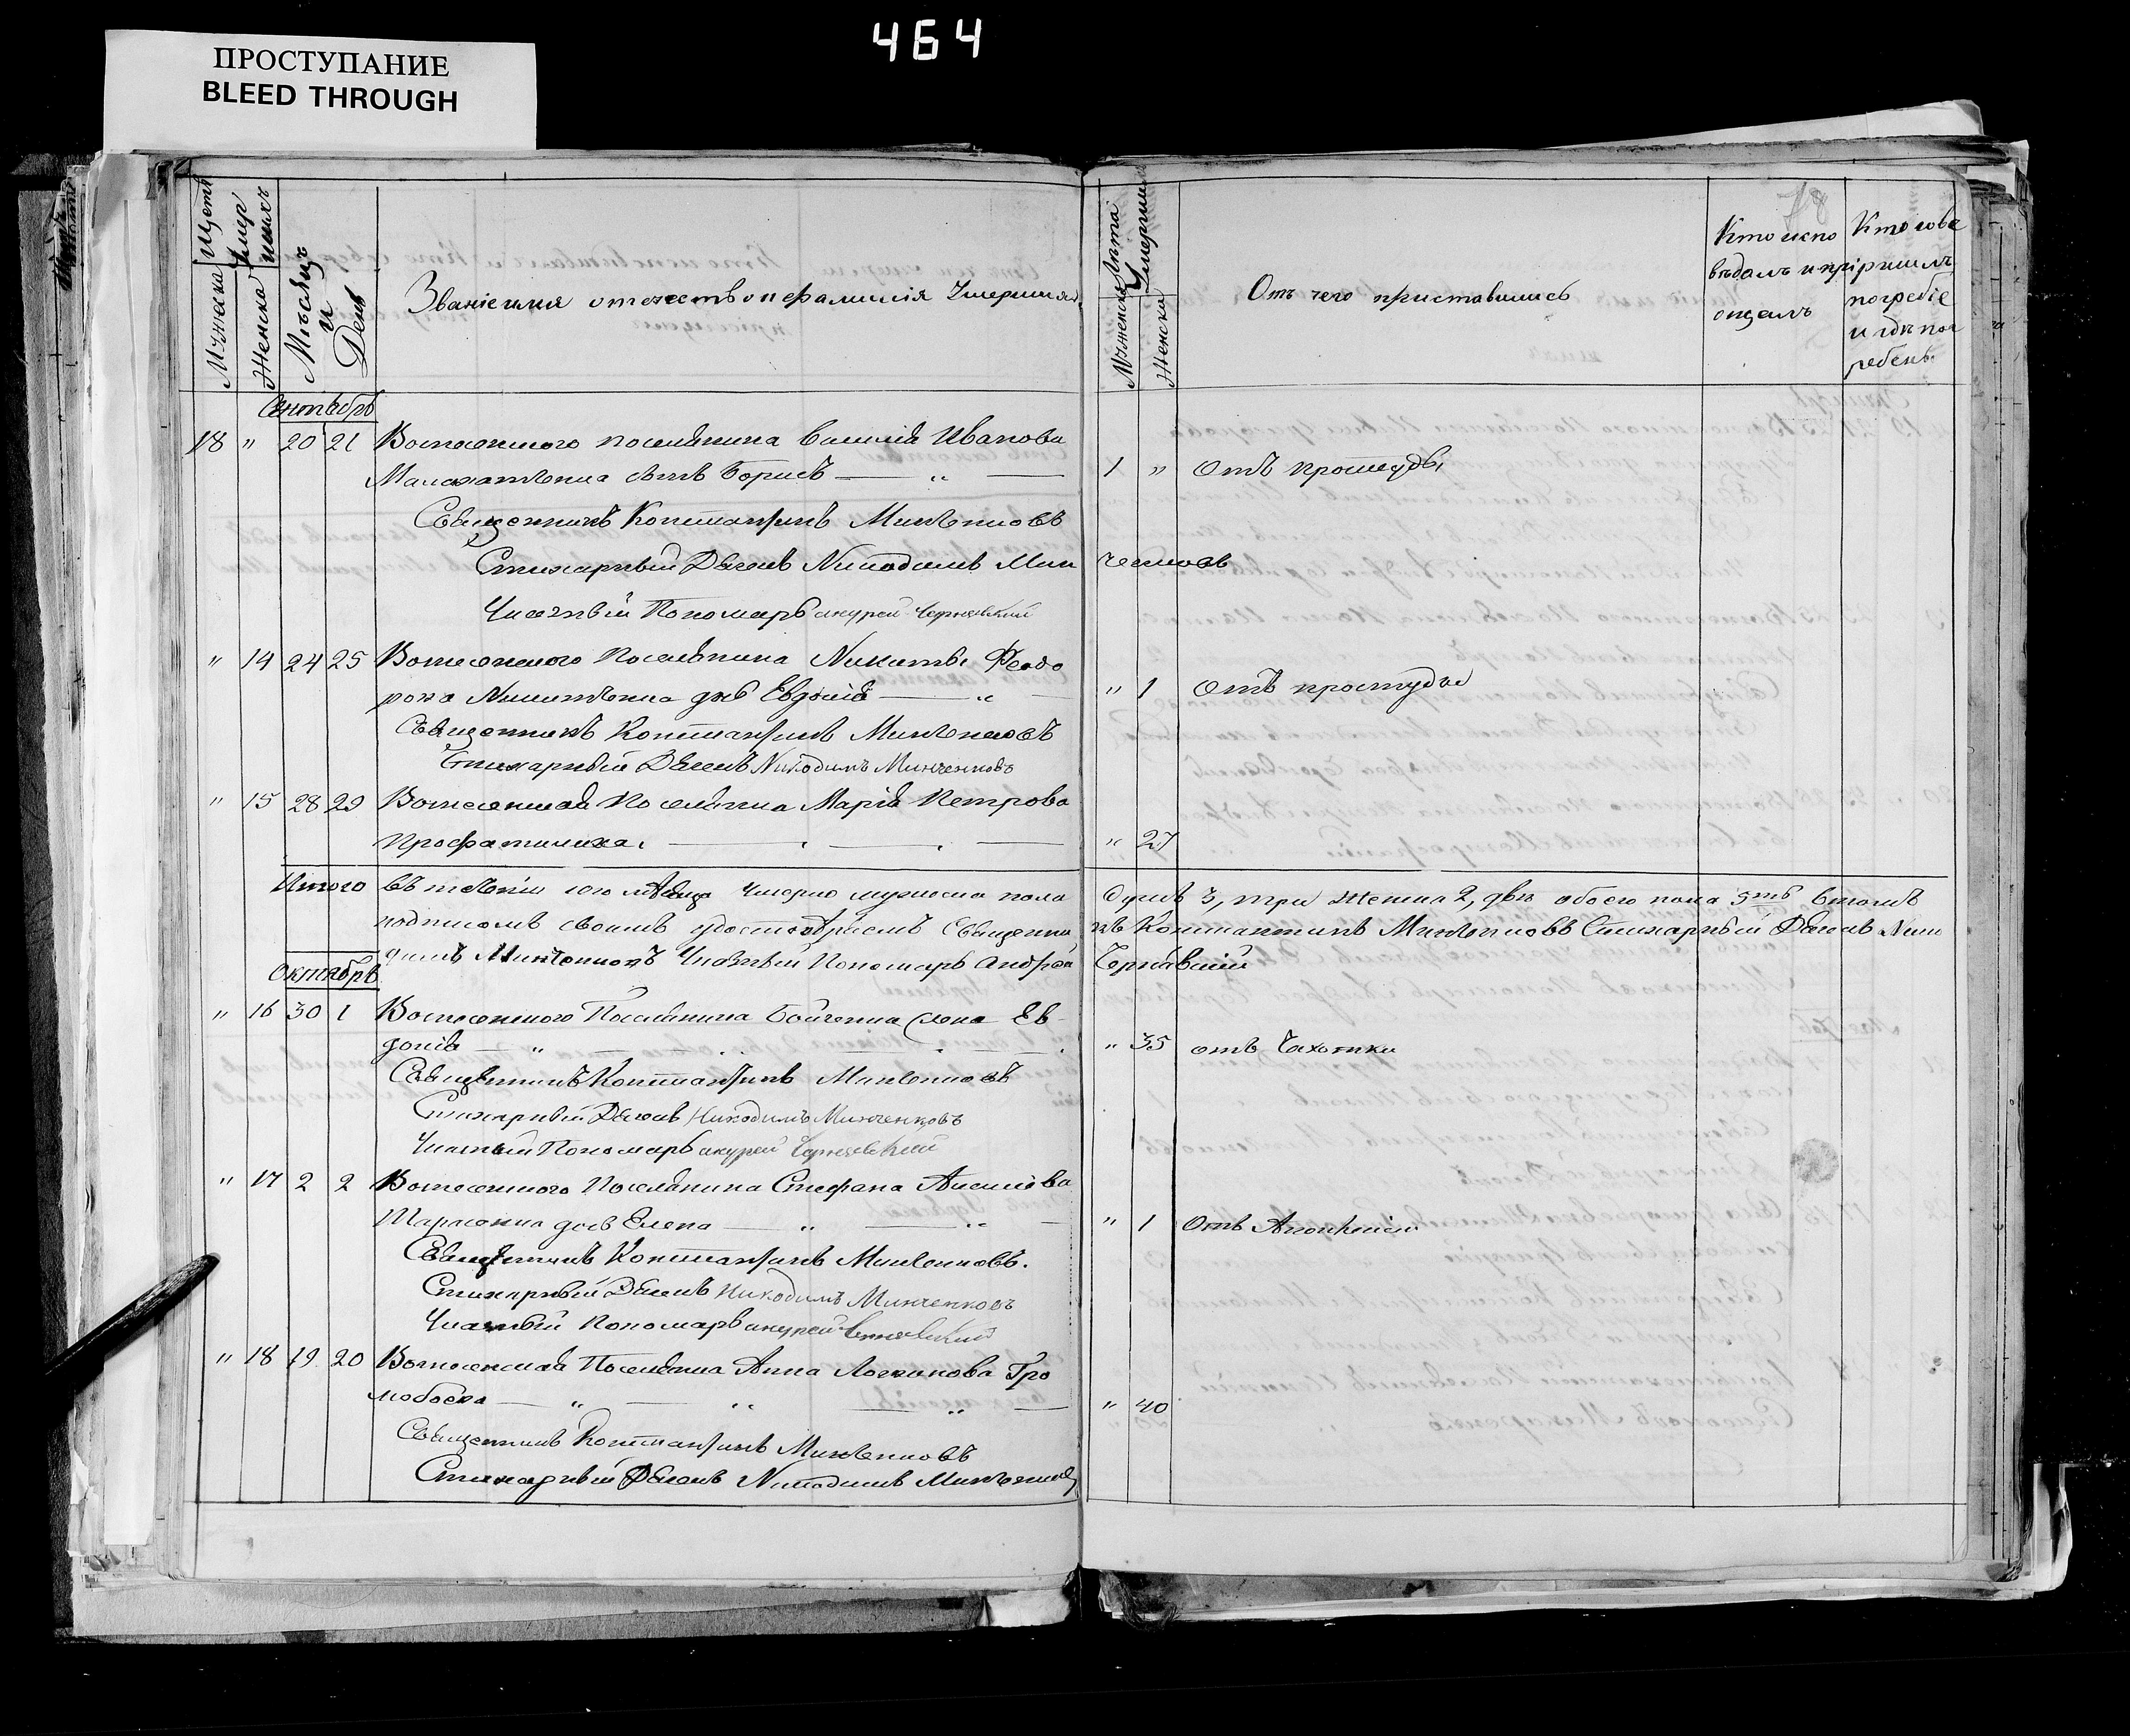 464
ПРОСТУПАНИЕ
BLEED THROUGH
78
Щетъ Умершихъ
Мужеска
Женска
Мѣсяцъ и День
Званіе имя отечество и фамилія Умершихъ
Лѣта Умершихъ
Мужеска
Женска
Отъ чего приставились
Кто испо
вѣдалъ и прі
ощалъ
Кто сове
ршилъ
погребіе
и гдѣ пог
ребенъ
Сентябрь
18 " 20 21 Вознесенского поселянина Василія Иванова
сынъ Борисъ 1 " Отъ простуды
Священникъ Константинъ Минченковъ
Стихарный Дьячекъ Никодимъ Мин ченковъ
Числный Пономарь Андрей Чернявский
" 14 24 25 Вознесенского Поселянина Никиты Феодо
рова Никитенка дочь Евдокія " 1 Отъ простуды
Священникъ Константинъ Минченковъ
Стихарный Дьячекъ Никодимъ Минченковъ
" 15 28 29 Вознесенская Поселянка Марія Петрова
Профатилиха " 27
Итого въ теченіи сего мѣсяца умерло мужеска пола душъ 3, три женска 2, двѣ обоего пола 5ть въ томъ
подписомъ своимъ удостовѣряемъ Священни къ Константинъ Минченковъ Стихарный Дьячекъ Нико
димъ Минченковъ Числный Пономарь Андрей Чернявский
Октябрь
" 16 30 1 Вознесенского Поселянина Бойченка жена Ев
докія " 35 отъ Чахотки
Священникъ Константинъ Минченковъ
Стихарный Дьячекъ Никодимъ Минченковъ
Числный Пономарь Андрей Чернявский
" 17 2 2 Вознесенского Поселянина Стефана Алексіева
Тарасенка дочь Елена " 1 Отъ
Священникъ Константинъ Минченковъ.
Стихарный Дьячекъ Никодимъ Минченковъ
Числный Пономарь Андрей Чернявский
" 18 19 20 Вознесенская Поселянка Анна Логинова Гро
мобоева " 40
Священникъ Константинъ Минченковъ
Стихарный Дьячекъ Никодимъ Минченковъ